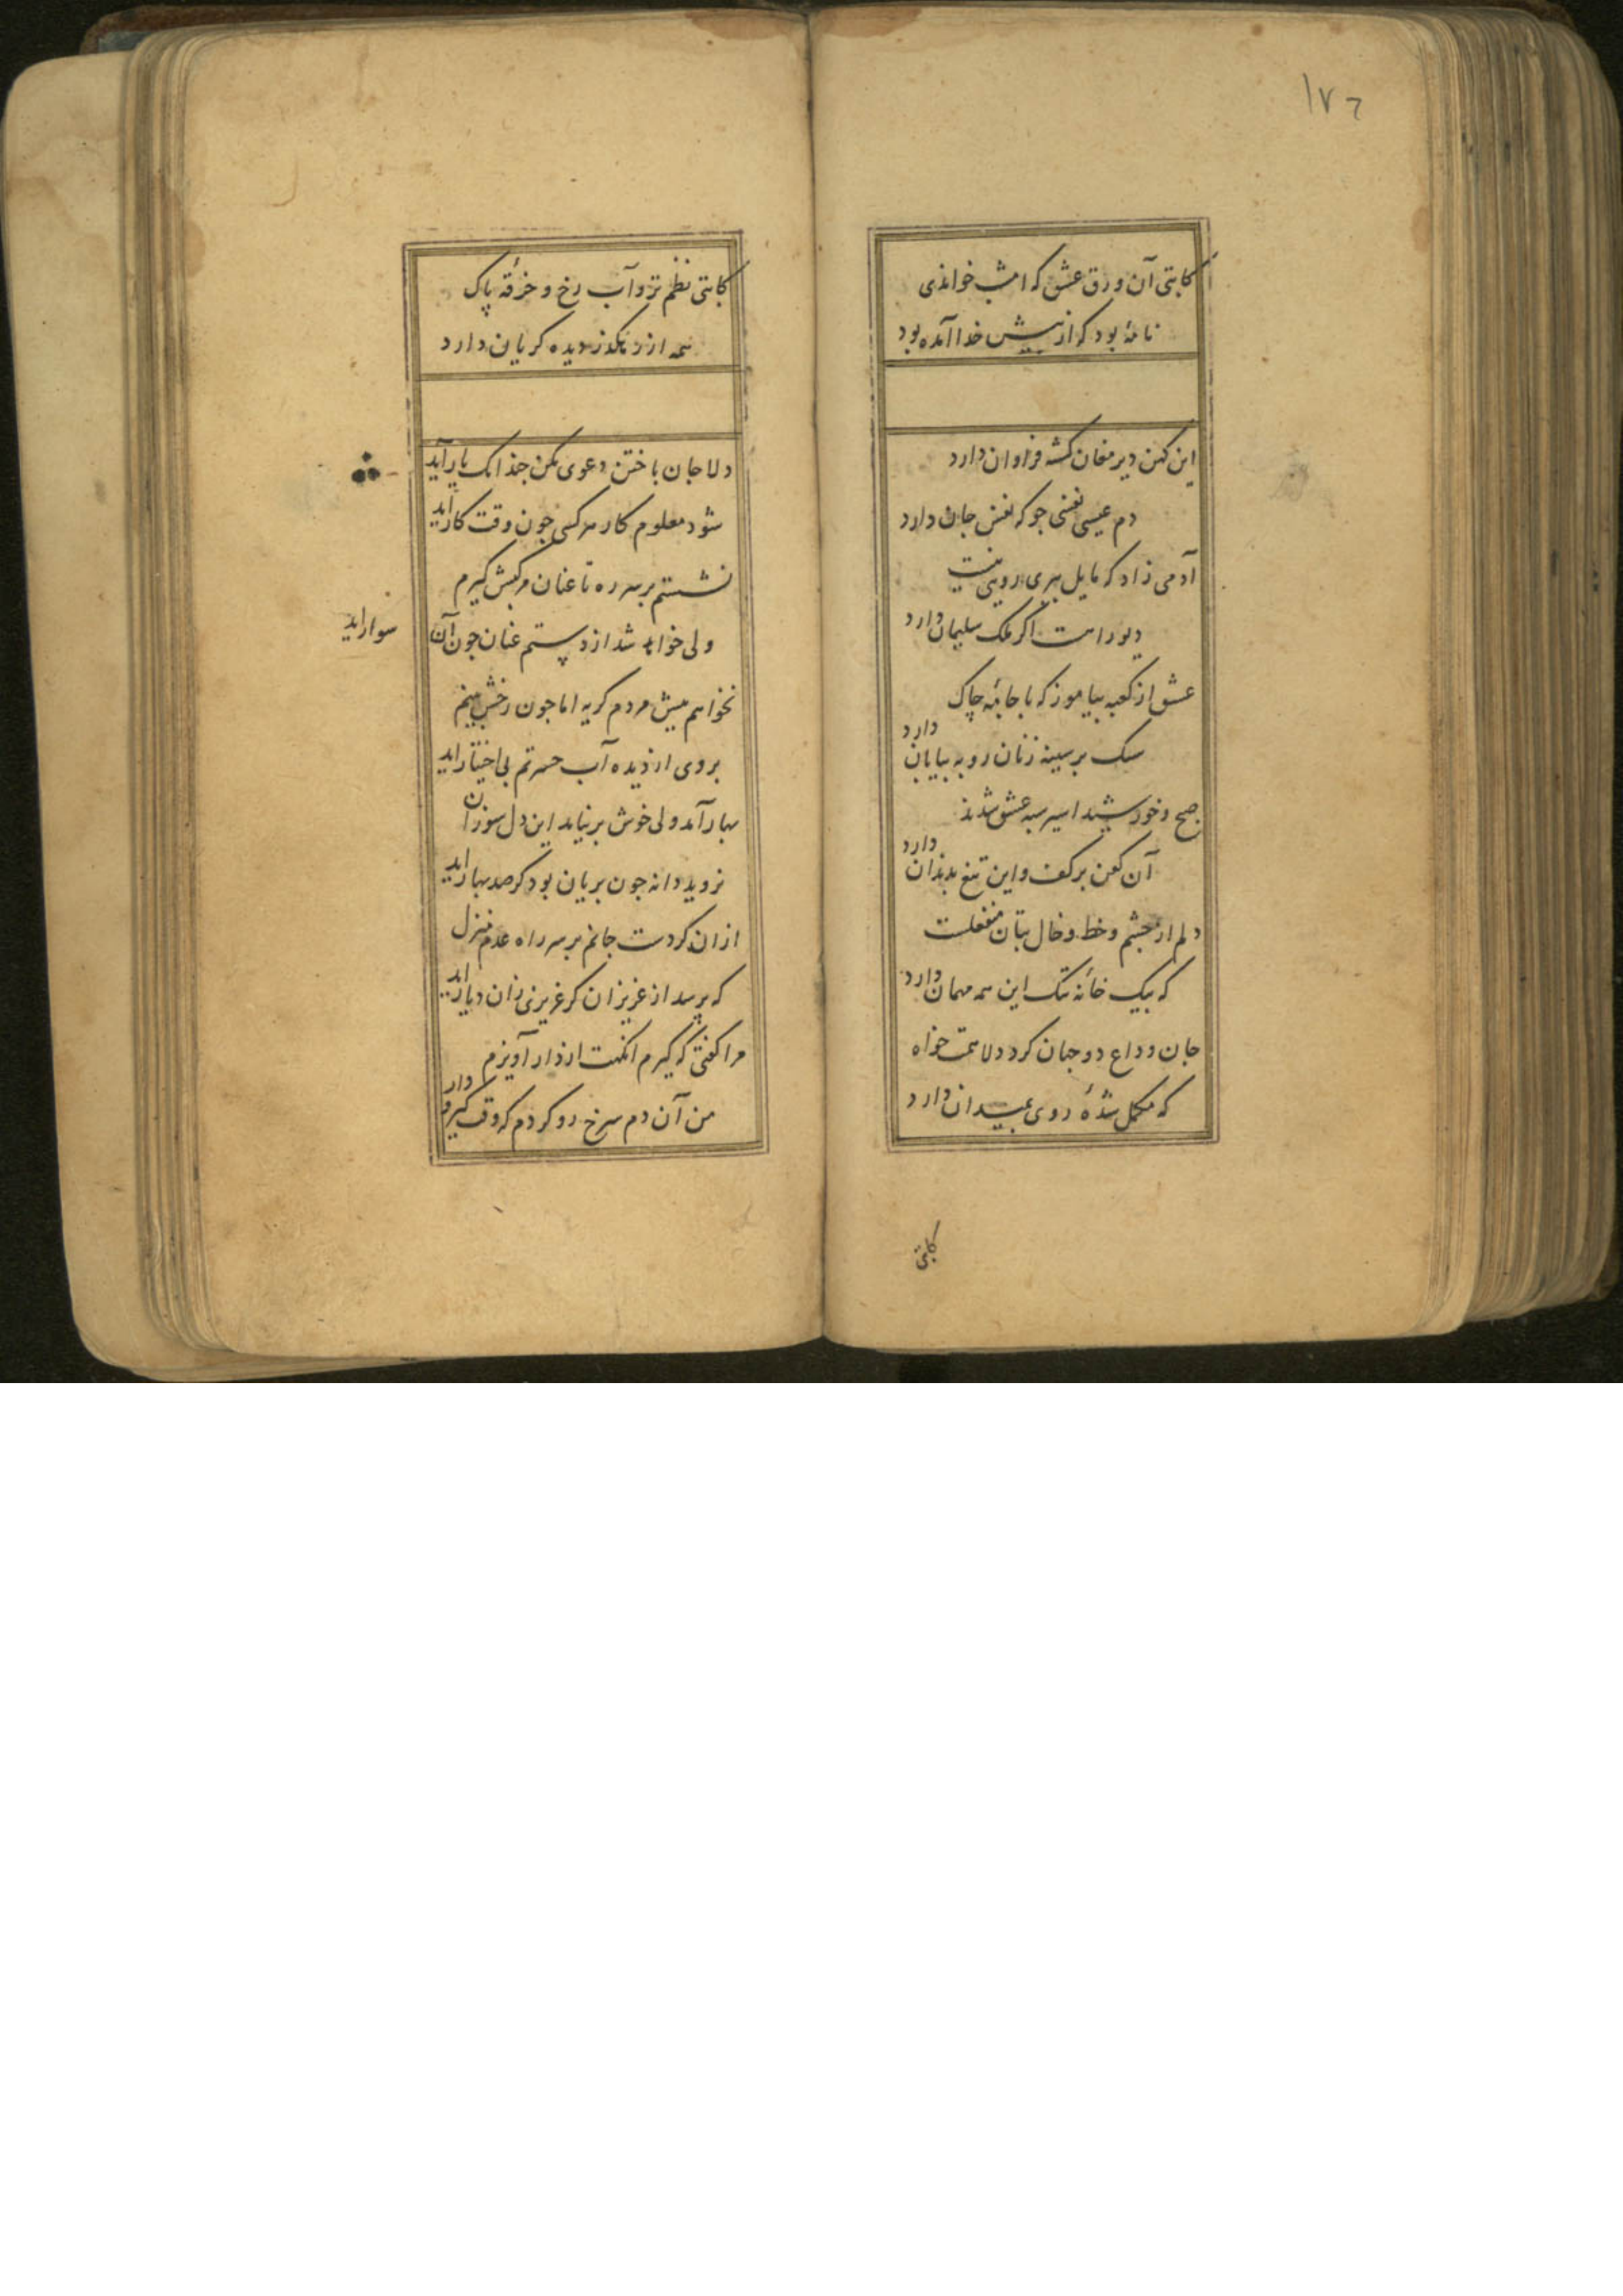 ١٧٦
کاتبی آن ورق عشق که امشب خواندی
نامهٔ بود که از پیش خدا آمده بود
این کهن دیر مغان کشته فراوان دارد
دم عیسی نفسی جو که نفس جان دارد
آدمی زاد که مایل بپری رویی نیست
دیو راست اگر ملک سلیمان دارد
عشق از کعبه بیاموز که با جامهٔ چاک
سنک بر سینه زنان رو به بیابان دارد
صبح و خورشید اسیر سپه عشق شدند
آن کفن بر کف و این تیغ بدندان دارد
دلم از چشم و خط و خال بتان منفعلست
که بیک خانهٔ تنک این همه مهمان دارد
جان وداع دو جهان کرد دلا همت خواه
که مکمل شدهٔ روی بمیدان دارد
کاتبی
کاتبی نظم تر و آب رخ و خرقهٔ پاک
همه از رهکذر دیده کریان دارد
دلا جان باختن دعوی مکن چندانک یار آید
شود معلوم کار هر کسی چون وقت کار اید
نشستم بر سر ره تا عنان مرکبش کیرم
ولی خواهد شد از دستم عنان چون آن
سوار اید
نخواهم پیش مردم کریه اما چون رخش بینم
بروی از دیده آب حسرتم بی اختیار اید
بهار آمد ولی خوش بر نیاید این دل سوزان
نروید دانه چون بریان بود کر صد بهار اید
از ان کردست جانم بر سر راه عدم منزل
که پرسد از عزیزان کر عزیزی زان دیار اید
مرا کفتی که کیرم انکهت از دار آویزم
من آن دم سرخ رو کردم که وقت کیر و
دار